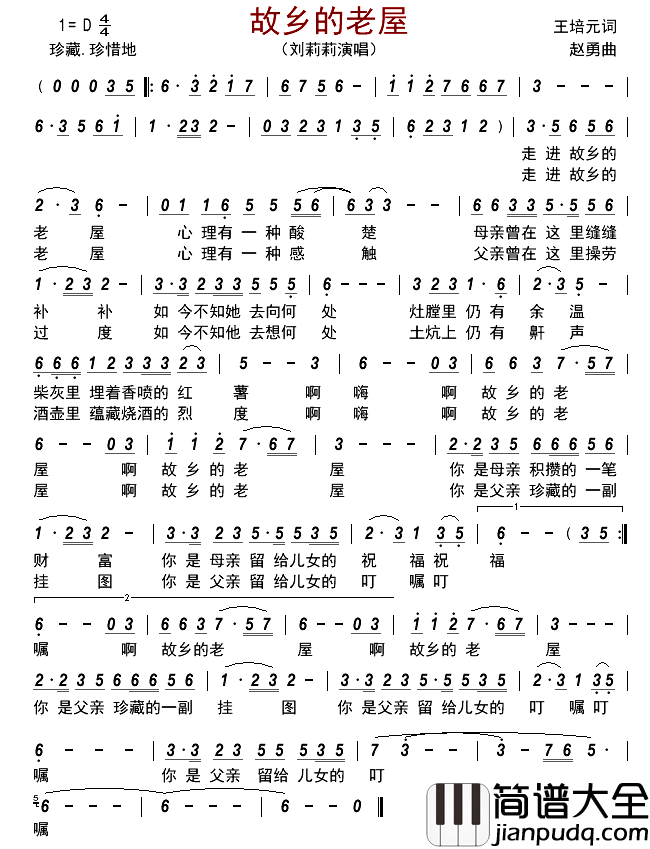 故乡的老屋
1= D 4/4
王培元词
珍藏.珍惜地
（刘莉莉演唱）
赵勇曲
( 0 0 0 0 3 5 ‖: 6 · 3 2 1 7 | 6 7 6 5 7 6 7 | 3 - - - |
6 · 3 5 6 1 | 1 · 2 3 2 - | 0 3 2 3 1 3 5 | 6 2 3 1 2 ) | 3 · 5 6 5 6
走 进 故乡的
走 进 故乡的
2 · 3 6 - | 0 1 1 6 5 5 5 6 | 6 3 3 - | 6 6 3 3 5 · 5 5 6
老 屋 心 理有 一 种 酸 楚 母亲曾在 这 里缝缝
老 屋 心 理有 一 种 感 触 父亲曾在 这 里操劳
1 · 2 3 2 - | 3 · 3 2 3 3 2 1 5 | 6 - - - | 3 3 2 3 1 · 6 | 2 · 3 5 -
补 补 如 今不知她 去向何 处 灶膛里 仍 有 余 温
过 度 如 今不知他 去想何 处 土炕上 仍 有 鼾 声
6 6 6 1 2 3 3 3 2 3 | 5 - - 0 3 | 6 - - 0 3 | 6 6 3 7 · 5 7
柴灰里 埋着香喷的 红 薯 啊 嗨 啊 故 乡 的 老
酒壶里 蕴藏烧酒的 烈 度 啊 嗨 啊 故 乡 的 老
6 - - 0 3 | 1 1 2 7 · 6 7 | 3 - - - | 2 · 2 3 5 6 6 6 5 6
屋 啊 故 乡 的 老 屋 你 是母亲 积攒的 一笔
屋 啊 故 乡 的 老 屋 你 是父亲 珍藏的 一副
1
1 · 2 3 2 - | 3 · 3 2 3 5 · 5 5 3 5 | 2 · 3 1 3 5 | 6 - - ( 3 5 :‖
财 富 你 是 母亲 留 给儿女的 祝 福祝 福
挂 图 你 是 父亲 留 给儿女的 叮 嘱叮
2
6 - - 0 3 | 6 6 3 7 · 5 7 | 6 - - 0 3 | 1 1 2 7 · 6 7 | 3 - - -
嘱 啊 故乡的老 屋 啊 故乡的老 屋
2 · 2 3 5 6 6 6 5 6 | 1 · 2 3 2 - | 3 · 3 2 3 5 · 5 5 3 5 | 2 · 3 1 3 5
你 是父亲 珍藏的一副 挂 图 你是父亲 留 给儿女的 叮 嘱叮
6 - - - | 3 · 3 2 3 5 · 5 5 3 5 | 7 3 - - | 3 - 7 6 5 ·
嘱 你 是 父亲 留给 儿女的 叮
5 6 - - - | 6 - - - | 6 - - - ‖
嘱
简谱大全
jianpudq.com